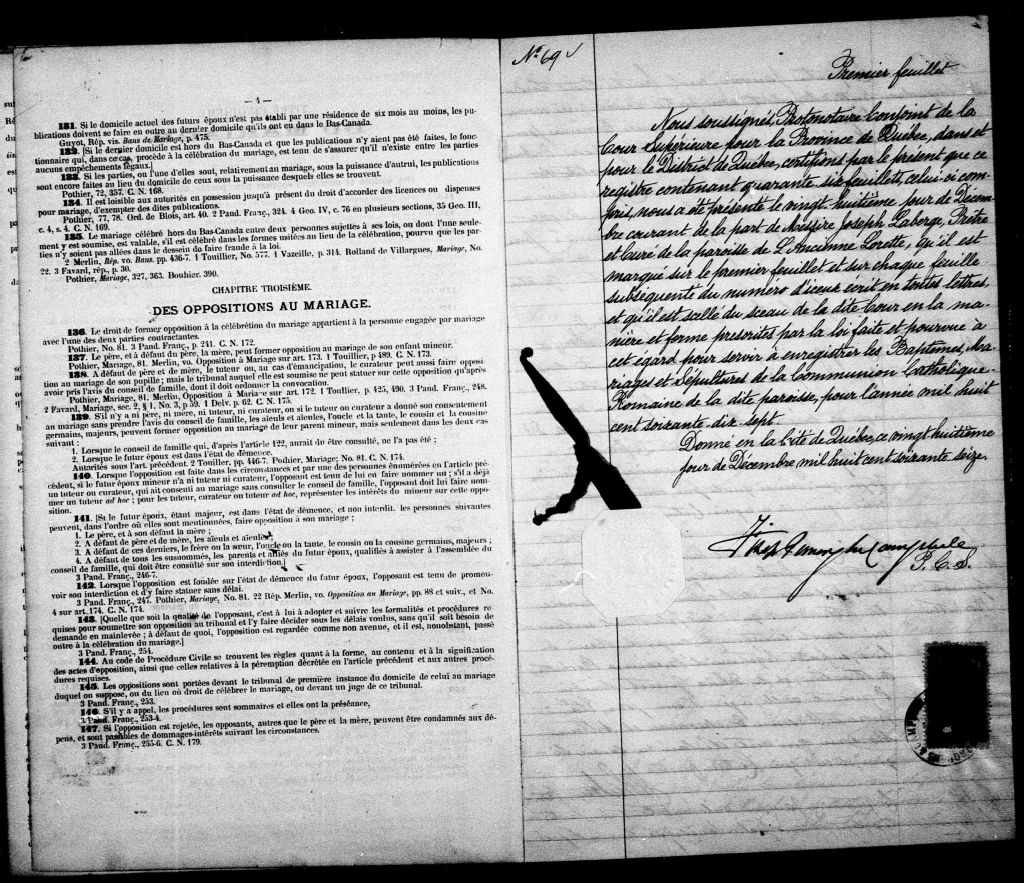 — 4 —
131. Si le domicile actuel des futurs époux n'est pas établi par une résidence de six mois au moins, les pu-
blications doivent se faire en outre au dernier domicile qu'ils ont eu dans le Bas-Canada.
Guyot, Rép. vis. Bans de Mariage, p. 475.
132. [Si le dernier domicile est hors du Bas-Canada et que les publications n'y aient pas été faites, le fonc-
tionnaire qui, dans ce cas, procède à la célébration du mariage, est tenu de s'assurer qu'il n'existe entre les parties
aucuns empêchements légaux.]
133. Si les parties, ou l'une d'elles sont, relativement au mariage, sous la puissance d'autrui, les publications
sont encore faites au lieu du domicile de ceux sous la puissance desquels elles se trouvent.
Pothier, 72, 357. C. N. 168.
134. Il est loisible aux autorités en possession jusqu'à présent du droit d'accorder des licences ou dispenses
pour mariage, d'exempter des dites publications.
Pothier, 77, 78. Ord. de Blois, art. 40. 2 Pand. Franç., 324. 4 Geo. IV, c. 76 en plusieurs sections, 35 Geo. III,
c. 4, s. 4. C. N. 169.
135. Le mariage célébré hors du Bas-Canada entre deux personnes sujettes à ses lois, ou dont l'une seule-
ment y est soumise, est valable, s'il est célébré dans les formes usitées au lieu de la célébration, pourvu que les par-
ties n'y soient pas allées dans le dessein de faire fraude à la loi.
2 Merlin, Rép. vo. Bans. pp. 436-7. 1 Touillier, No. 577. 1 Vazeille, p. 314. Rolland de Villargues, Mariage, No.
22. 3 Favard, rép., p. 30.
Pothier, Mariage, 327, 363. Bouhier. 390.
CHAPITRE TROISIÈME.
DES OPPOSITIONS AU MARIAGE.
136. Le droit de former opposition à la célébration du mariage appartient à la personne engagée par mariage
avec l'une des deux parties contractantes.
Pothier, No. 81. 3 Pand. Franç., p. 241. C. N. 172.
137. Le père, et à défaut du père, la mère, peut former opposition au mariage de son enfant mineur.
Pothier, Mariage, 81. Merlin, vo. Opposition à Mariage sur art. 173. 1 Touillier, p 489. C. N. 173.
138. A défaut de père et de mère, le tuteur ou, au cas d'émancipation, le curateur peut aussi faire opposi-
tion au mariage de son pupille; mais le tribunal auquel elle est soumise ne peut statuer sur cette opposition qu'après
avoir pris l'avis du conseil de famille, dont il doit ordonner la convocation.
Pothier, Mariage, 81. Merlin, Opposition à Mariage sur art. 172. 1 Toullier, p. 425, 490. 3 Pand. Franç., 248.
2 Favard, Mariage, sec. 2, § 1, No. 3, p 59. 1 Delv. p. 62. C. N. 175.
139. S'il n'y a ni père, ni mère, ni tuteur, ni curateur, ou si le tuteur ou curateur a donné son consentement
au mariage sans prendre l'avis du conseil de famille, les aïeuls et aïeules, l'oncle et la tante, le cousin et la cousine
germains, majeurs, peuvent former opposition au mariage de leur parent mineur, mais seulement dans les deux cas
suivant :
1. Lorsque le conseil de famille qui, d'après l'article 122, aurait du être consulté, ne l'a pas été ;
2. Lorsque le futur époux est dans l'état de démence.
Autorités sous l'art. précédent. 2 Touiller, pp. 446-7. Pothier, Mariage; No. 81. C. N. 174.
140. Lorsque l'opposition est faite dans les circonstances et par une des personnes énumérées en l'article pré-
cédent, si le futur époux mineur n'a ni tuteur ni curateur, l'opposant est tenu de lui en faire nommer un ; s'il a déjà
un tuteur ou curateur, qui ait consenti au mariage sans consulter le conseil de famille, l'opposant doit lui faire nom-
mer un tuteur ad hoc ; pour les tuteur, curateur ou tuteur ad hoc, représenter les intérêts du mineur sur cette oppo-
sition.
141. [Si le futur époux, étant majeur, est dans l'état de démence, et non interdit. les personnes suivantes
peuvent, dans l'ordre où elles sont mentionnées, faire opposition à son mariage ;
1. Le père, et à son défaut la mère ;
2. A défaut de père et de mère, les aïeuls et aïeules;
3. A défaut de ces derniers, le frère ou la sœur, l'oncle ou la tante, le cousin ou la cousine germains, majeurs ;
4. A défaut de tous les susnommés, les parents et alliés du futur époux, qualifiés à assister à l'assemblée du
conseil de famille, qui doit être consulté sur son interdiction.]
3 Pand. Franç., 246-7.
142. Lorsque l'opposition est fondée sur l'état de démence du futur époux, l'opposant est tenu de promou-
voir son interdiction et d'y faire statuer sans délai.
3 Pand. Franç., 247. Pothier, Mariage, No. 81. 22 Rép. Merlin, vo. Opposition au Mariage, pp. 88 et suiv., et No.
4 sur art. 174. C. N. 174.
143. [Quelle que soit la qualité de l'opposant, c'est à lui à adopter et suivre les formalités et procédures re
quises pour soumettre son opposition au tribunal et l'y faire décider sous les délais voulus, sans qu'il soit besoin de
demande en mainlevée ; à défaut de quoi, l'opposition est regardée comme non avenue, et il est, nonobstant, passé
outre à la célébration du mariage.]
3 Pand. Franç., 254.
144. Au code de Procédure Civile se trouvent les règles quant à la forme, au contenu et à la signification
des actes d'opposition, ainsi que celles relatives à la péremption décrétée en l'article précédent et aux autres procé-
dures requises.
145. Les oppositions sont portées devant le tribunal de première instance du domicile de celui au mariage
duquel on s'oppose, ou du lieu où droit de célébrer le mariage, ou devant un juge de ce tribunal.
3 Pand. Franç., 253.
146. S'il y a appel, les procédures sont sommaires et elles ont la préséance.
3 Pand. Franç., 253-4.
147. Si l'opposition est rejetée, les opposants, autres que le père et la mère, peuvent être condamnés aux dé-
pens, et sont passibles de dommages-intérêts suivant les circonstances.
3 Pand. Franç., 255-6. C. N. 179.
No 69
Premier feuillet
Nous soussignés, Protonotaire Conjoint de la
Cour Supérieure pour la Province de Québec, dans et
pour le District de Québec, certifions par le présent que ce
registre contenant quarante six feuillets, celui-ci com-
pris, nous a été présenté le vingt huitième jour de Décem-
bre courant de la part de Messire Joseph Laberge, Prêtre
et Curé de la paroisse de L'Ancienne Lorette, qu'il est
marqué sur le premier feuillet et sur chaque feuille
subséquente du numéro d'iceux écrit en toutes lettres,
et qu'il est scellé du sceau de la dite Cour en la ma-
nière et forme prescrites par la loi faite et pourvue à
cet égard, pour servir à enregistrer les Baptêmes, Ma-
riages et Sépultures de la Communion Catholique-
Romaine de la dite paroisse, pour l'année mil huit
cent soixante-dix-sept.
Donné en la Cité de Québec, ce vingt huitième
jour de Décembre, mil huit cent soixante seize.
P. C. S.